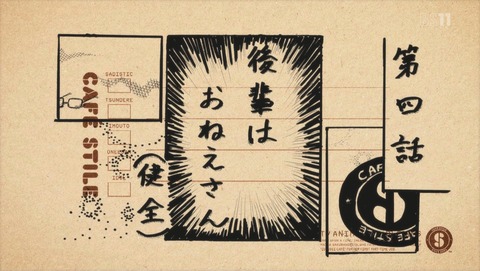 第四話
後輩は
おねえさん
(健全)
CAFE STILE
SADISTIC
TSUNDERE
IMOUTO
CAFE STILE
CAFE STILE
S
11